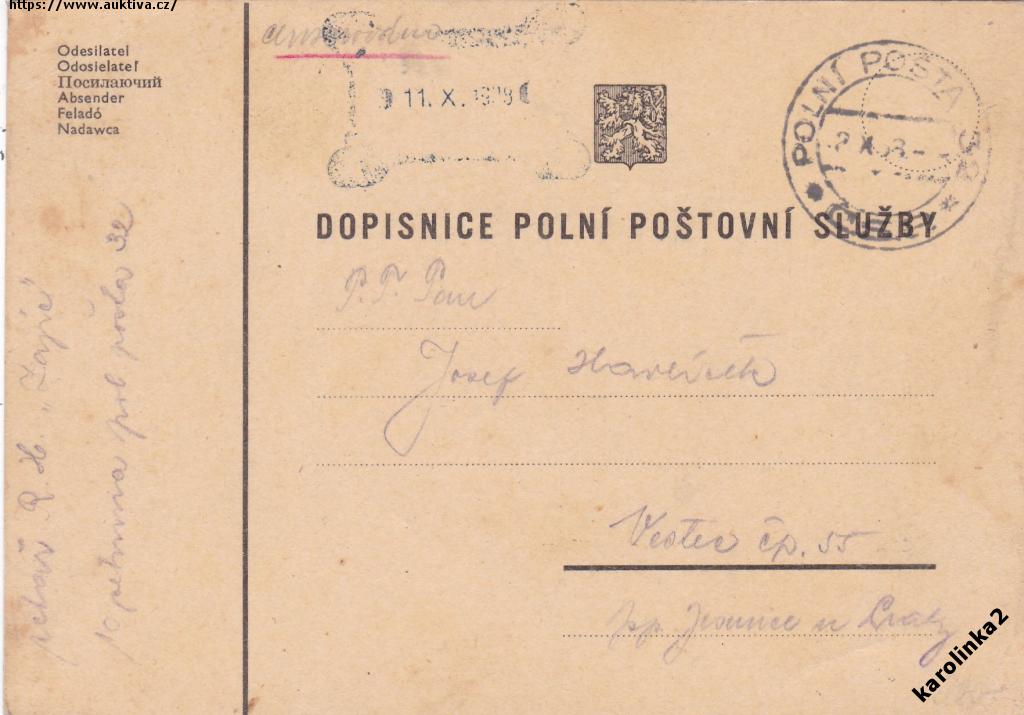 https://www.auktiva.cz/
Odesilatel
Odosielateľ
Посилаючий
Absender
Feladó
Nadawca
11. X. 1938
POLNÍ POŠTA 32
DOPISNICE POLNÍ POŠTOVNÍ SLUŽBY
P.T. Pan
Josef Havlíček
Vestec čp. 55
pp. u
pekař R. H. „Zajíc"
10 pol pošta 32
karolinka2